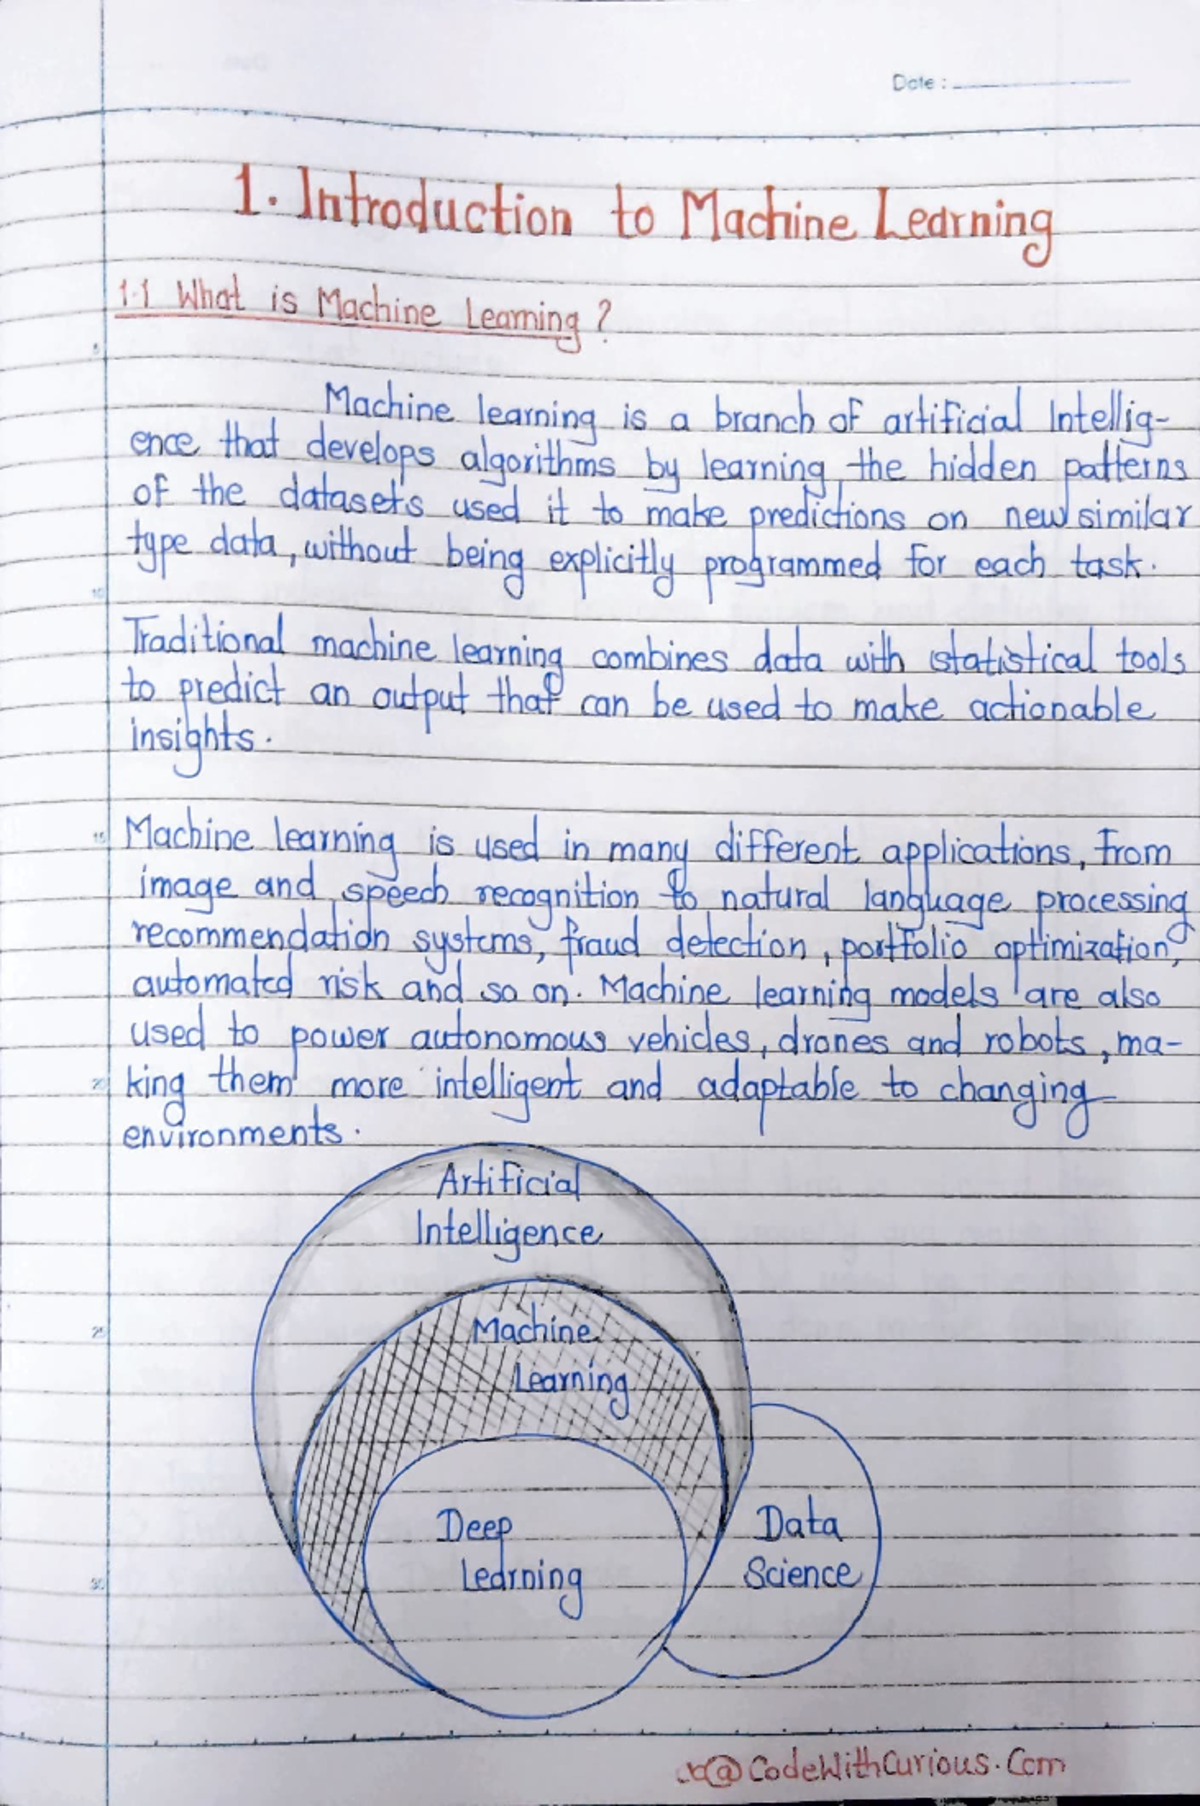 Date :
1. Introduction to Machine Learning
1.1 What is Machine Learning ?
5
Machine learning is a branch of artificial Intellig-
ence that develops algorithms by learning the hidden patterns
of the datasets used it to make predictions on new similar
type data, without being explicitly programmed for each task.
10
Traditional machine learning combines data with statistical tools
to predict an output that can be used to make actionable
insights.
15
Machine learning is used in many different applications, from
image and speech recognition to natural language processing
recommendation systems, fraud detection, portfolio optimization,
automated risk and so on. Machine learning models are also
used to power autonomous vehicles, drones and robots, ma-
20
king them more intelligent and adaptable to changing
environments.
Artificial
Intelligence
25
Machine
Learning
Deep
Learning
Data
Science
30
@CodeWithCurious.Com